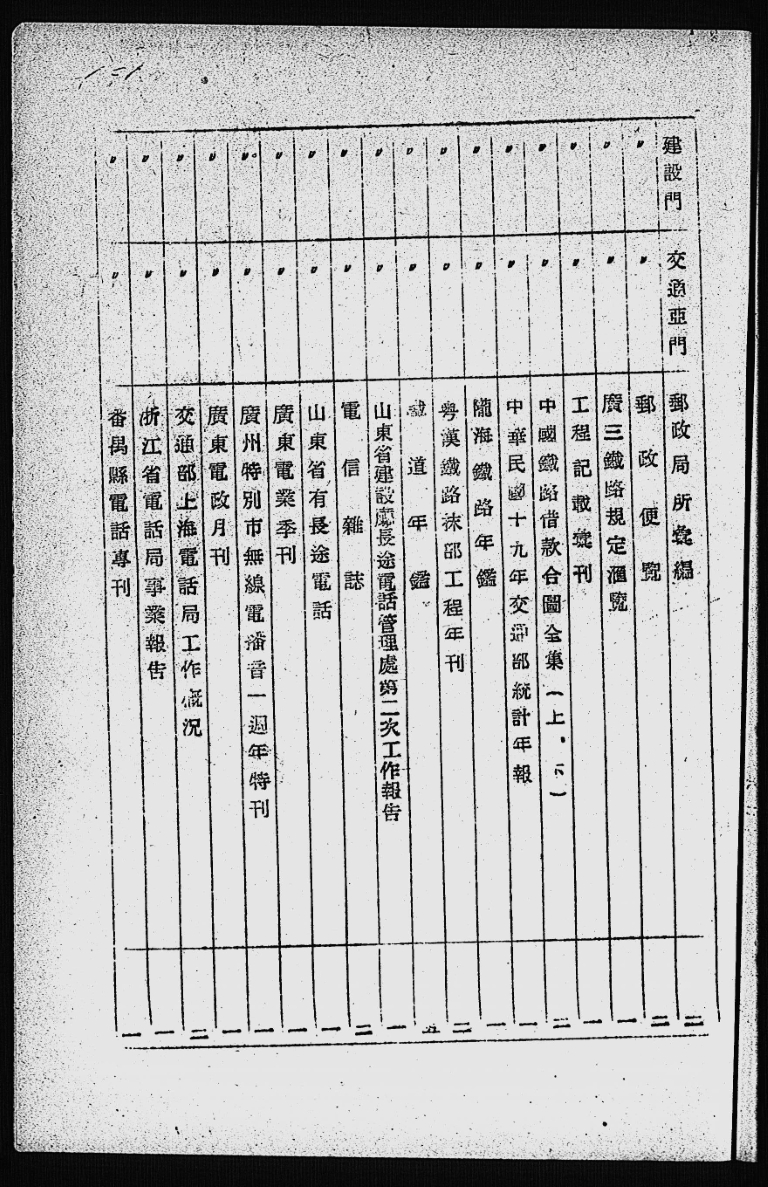 建設門 交通亞門 郵政局所彙編 二
〃 〃 郵政便覽 二
〃 〃 廣三鐵路規定滙覽 一
〃 〃 工程記載彙刊 一
〃 〃 中國鐵路借款合圖全集(上・下) 二
〃 〃 中華民國十九年交通部統計年報 一
〃 〃 隴海鐵路年鑑 一
〃 〃 粤漢鐵路株部工程年刊 二
〃 〃 鐵道年鑑 五
〃 〃 山東省建設廳長途電話管理處第二次工作報告 一
〃 〃 電信雜誌 二
〃 〃 山東省有長途電話 一
〃 〃 廣東電業季刊 一
〃 〃 廣州特別市無線電播音一週年特刊 一
〃 〃 廣東電政月刊 一
〃 〃 交通部上海電話局工作概況 二
〃 〃 浙江省電話局事業報告 一
〃 〃 番禺縣電話專刊 一